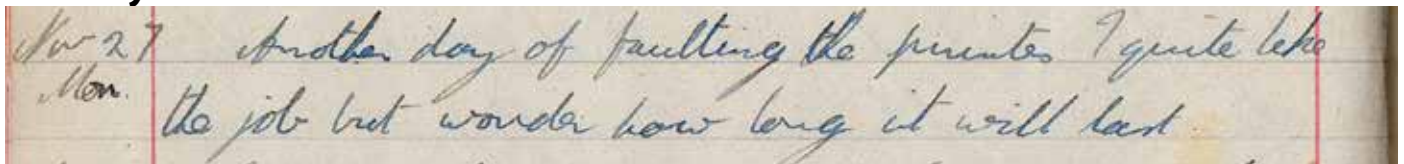 Nov 27 Another day of faulting the printer I quite like
Mon. the job but wonder how long it will last.